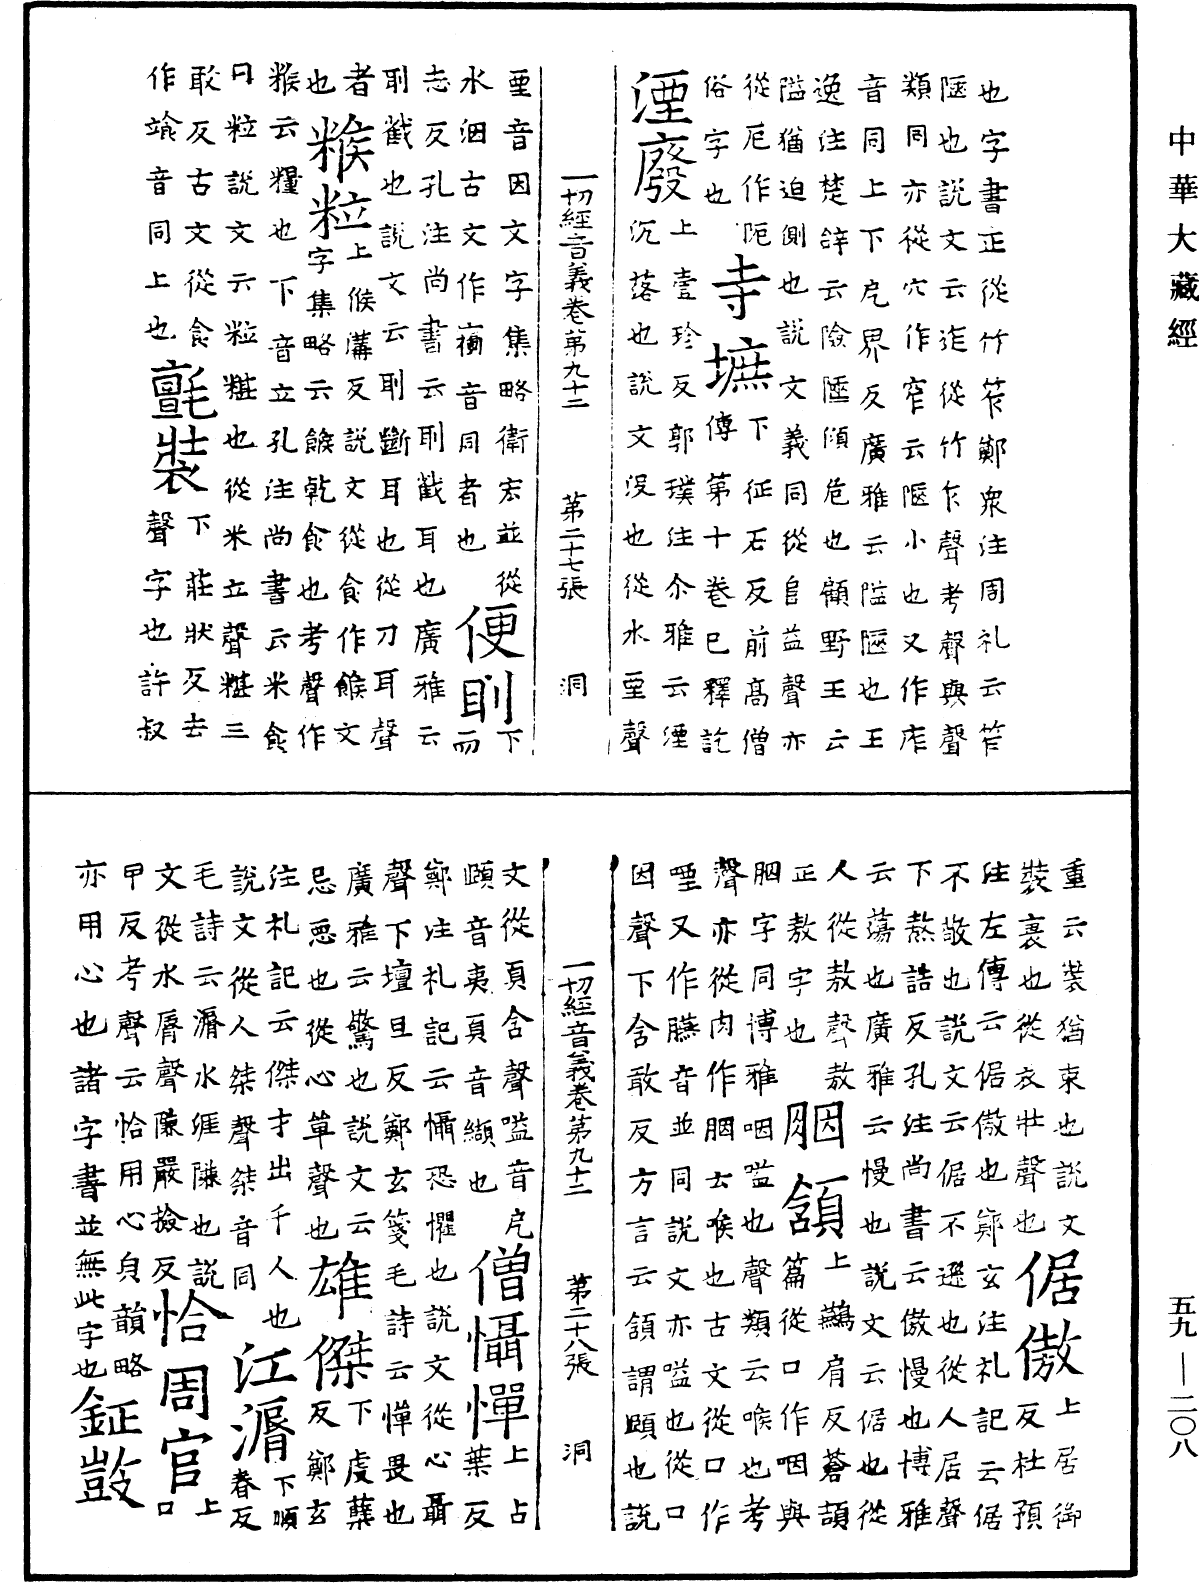 中華大藏經
也字書正從竹笮鄭衆注周礼云笮
陿也說文云迮從竹乍聲考聲與聲
類同亦從穴作窄云陿小也又作庘
音同上下戹界反廣雅云隘陿也王
逸注楚辝云險陿傾危也顧野王云
隘猶迫側也說文義同從𨸏益聲亦
從戹作阨 寺㙎下征石反前高僧
俗字也 傳第十卷已釋訖
湮廢上壹珍反郭璞注尒雅云湮
沉落也說文没也從水垔聲
一切經音義卷第九十二 第二十七張 洞
垔音因文字集略衛宏並從
水洇古文作𡒌音同者也 便刵下而
志反孔注尚書云刵截耳也廣雅云
刵截也說文云刵斷耳也從刀耳聲
者 糇粒上候溝反說文從食作餱文
也 字集略云餱乾食也考聲作
糇云糧也下音立孔注尚書云米食
曰粒說文云粒糂也從米立聲糂三
敢反古文從食 氈裝下莊狀反去
作䇐音同上也 聲字也許叔
重云裝猶束也說文
裝裹也從衣壯聲也 倨傲上居御
反杜預
注左傳云倨傲也鄭玄注礼記云倨
不敬也說文云倨不遜也從人居聲
下熬誥反孔注尚書云傲慢也博雅
云蕩也廣雅云慢也說文云倨也從
人從敖聲敖
正敖字也 胭頷上鷰肩反蒼頡
篇從口作咽與
胭字同博雅咽嗌也聲類云喉也考
聲亦從肉作胭云喉也古文從口作
㖶又作臙音並同說文亦嗌也從口
因聲下含敢反方言云頷謂頤也說
文從頁含聲嗌音戹
頤音夷頁音纈也 僧懾憚上占
葉反
鄭注礼記云懾恐懼也說文從心聶
聲下壇旦反鄭玄箋毛詩云憚畏也
廣雅云驚也說文云
忌惡也從心單聲也 雄傑下虔蘖
反鄭玄
注礼記云傑才出千人也
說文從人桀聲桀音同 江漘下順
春反
毛詩云漘水涯㵎也說
文從水脣聲㵎嚴撿反 恰周官上
口
甲反考聲云恰用心皃韻略
亦用心也諸字書並無此字也 鉦鼓
一切經音義卷第九十二 第二十八張 洞
五九—二〇八